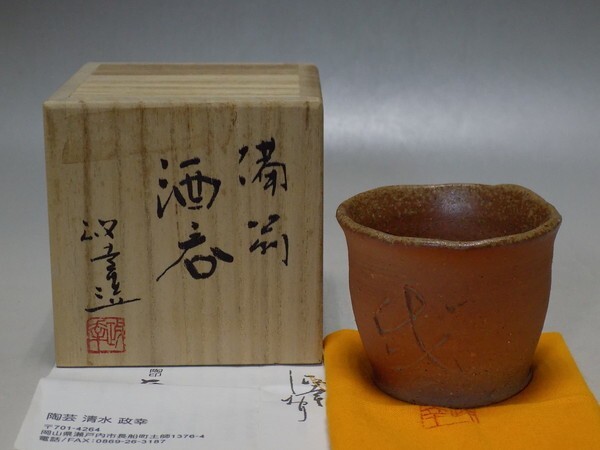 備前
酒呑
政幸造
陶印
陶芸 清水 政幸
〒701-4264
岡山県瀬戸内市長船町土師1376-4
電話/FAX:0869-26-3187